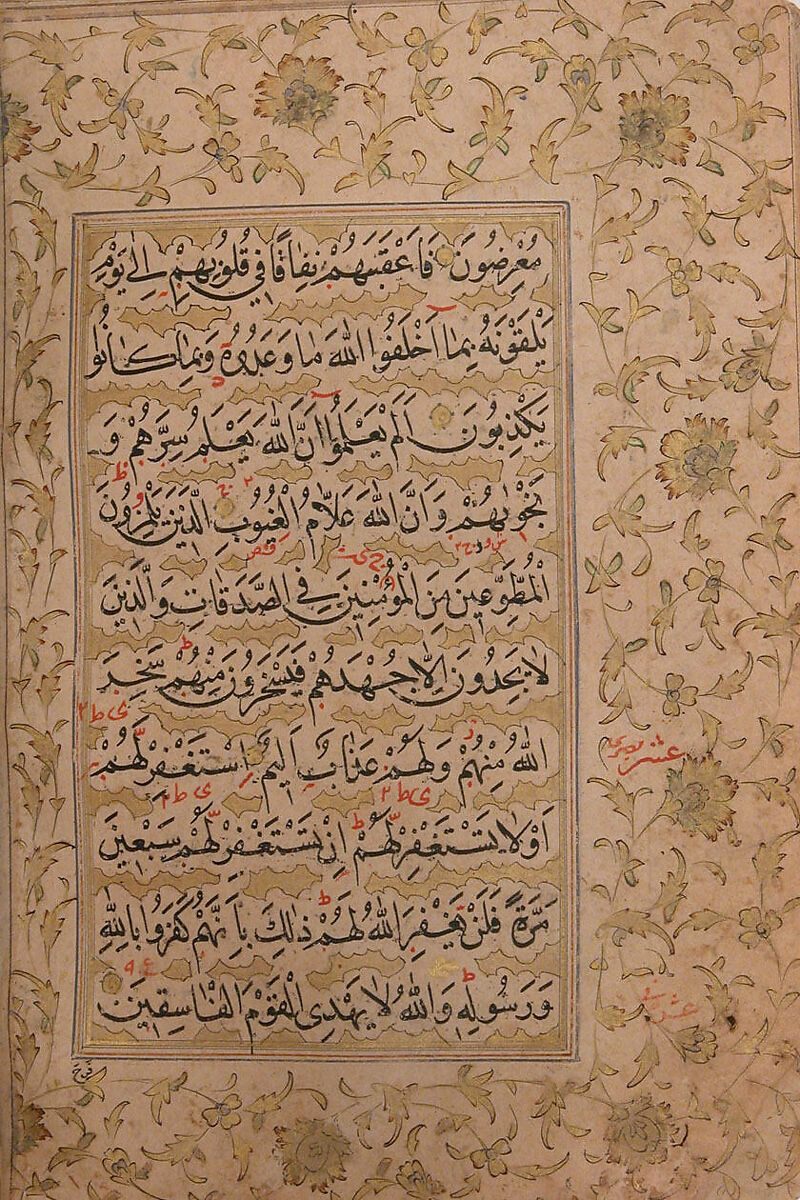 مُعْرِضُونَ فَاَعْقَبَهُمْ نِفَاقًا فِي قُلُوبِهِمْ اِلٰى يَوْمِ
يَلْقَوْنَهُ بِمَا اَخْلَفُوا اللّٰهَ مَا وَعَدُوهُ وَبِمَا كَانُوا
يَكْذِبُونَ اَلَمْ يَعْلَمُوا اَنَّ اللّٰهَ يَعْلَمُ سِرَّهُمْ وَ
نَجْوٰيهُمْ وَاَنَّ اللّٰهَ عَلَّامُ الْغُيُوبِ اَلَّذِينَ يَلْمِزُونَ
الْمُطَّوِّعِينَ مِنَ الْمُؤْمِنِينَ فِي الصَّدَقَاتِ وَالَّذِينَ
لَا يَجِدُونَ اِلَّا جُهْدَهُمْ فَيَسْخَرُونَ مِنْهُمْ سَخِرَ
اللّٰهُ مِنْهُمْ وَلَهُمْ عَذَابٌ اَلِيمٌ اِسْتَغْفِرْ لَهُمْ
اَوْ لَا تَسْتَغْفِرْ لَهُمْ اِنْ تَسْتَغْفِرْ لَهُمْ سَبْعِينَ
مَرَّةً فَلَنْ يَغْفِرَ اللّٰهُ لَهُمْ ذٰلِكَ بِاَنَّهُمْ كَفَرُوا بِاللّٰهِ
وَرَسُولِهِ وَاللّٰهُ لَا يَهْدِى الْقَوْمَ الْفَاسِقِينَ
فَرِحَ